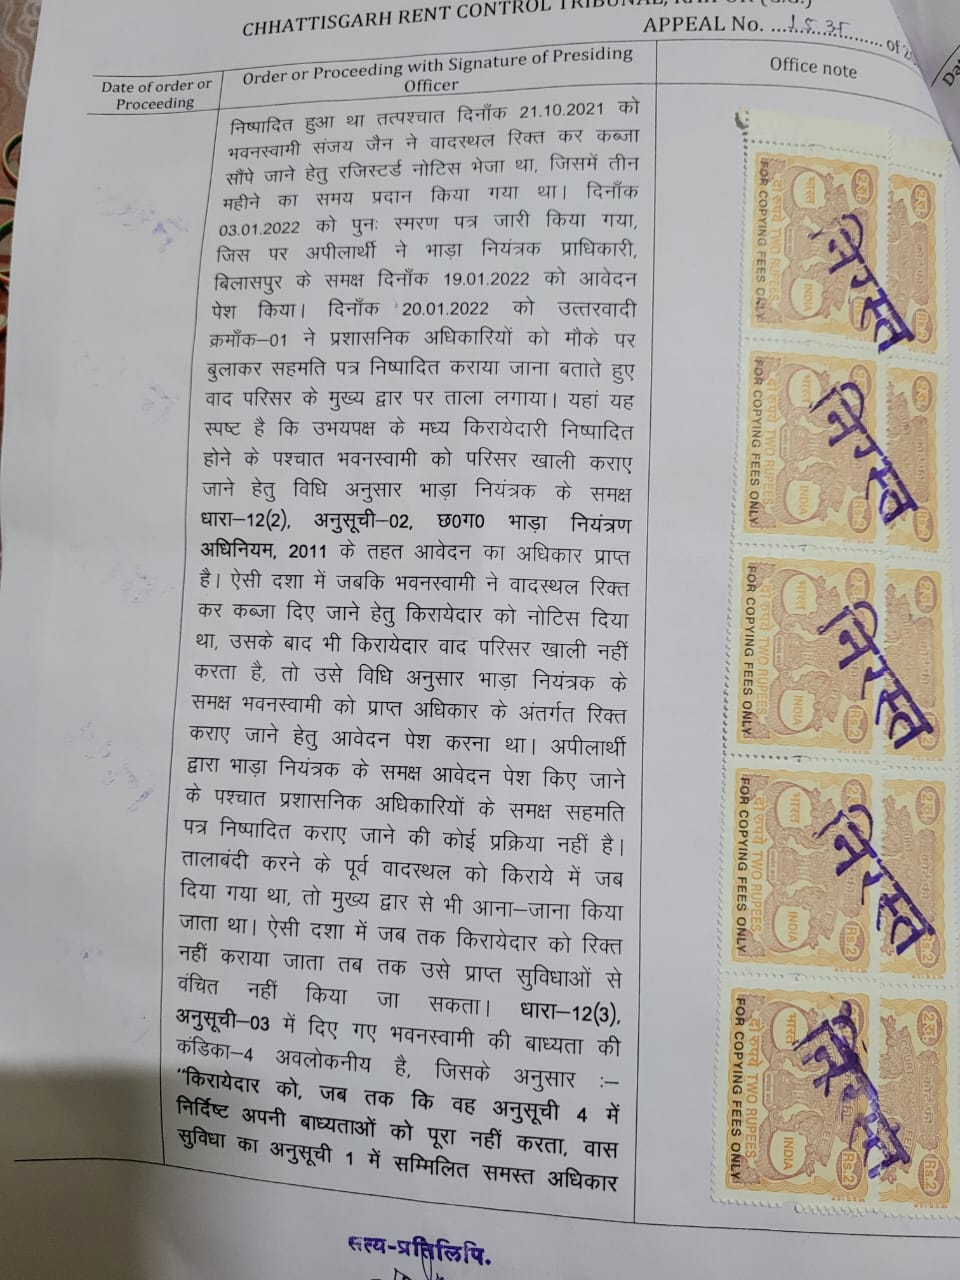 CHHATTISGARH RENT CONTROL TRIBUNAL, RAIPUR (C.G.)
APPEAL No. ....1535.... of 2
Date of order or Proceeding
Order or Proceeding with Signature of Presiding Officer
Office note
निष्पादित हुआ था तत्पश्चात दिनाँक 21.10.2021 को
भवनस्वामी संजय जैन ने वादस्थल रिक्त कर कब्जा
सौपे जाने हेतु रजिस्टर्ड नोटिस भेजा था, जिसमें तीन
महीने का समय प्रदान किया गया था। दिनाँक
03.01.2022 को पुनः स्मरण पत्र जारी किया गया,
जिस पर अपीलार्थी ने भाड़ा नियंत्रक प्राधिकारी,
बिलासपुर के समक्ष दिनाँक 19.01.2022 को आवेदन
पेश किया। दिनाँक 20.01.2022 को उत्तरवादी
क्रमाँक–01 ने प्रशासनिक अधिकारियों को मौके पर
बुलाकर सहमति पत्र निष्पादित कराया जाना बताते हुए
वाद परिसर के मुख्य द्वार पर ताला लगाया। यहां यह
स्पष्ट है कि उभयपक्ष के मध्य किरायेदारी निष्पादित
होने के पश्चात भवनस्वामी को परिसर खाली कराए
जाने हेतु विधि अनुसार भाड़ा नियंत्रक के समक्ष
धारा–12(2), अनुसूची–02, छ0ग0 भाड़ा नियंत्रण
अधिनियम, 2011 के तहत आवेदन का अधिकार प्राप्त
है। ऐसी दशा में जबकि भवनस्वामी ने वादस्थल रिक्त
कर कब्जा दिए जाने हेतु किरायेदार को नोटिस दिया
था, उसके बाद भी किरायेदार वाद परिसर खाली नहीं
करता है, तो उसे विधि अनुसार भाड़ा नियंत्रक के
समक्ष भवनस्वामी को प्राप्त अधिकार के अंतर्गत रिक्त
कराए जाने हेतु आवेदन पेश करना था। अपीलार्थी
द्वारा भाड़ा नियंत्रक के समक्ष आवेदन पेश किए जाने
के पश्चात प्रशासनिक अधिकारियों के समक्ष सहमति
पत्र निष्पादित कराए जाने की कोई प्रक्रिया नहीं है।
तालाबंदी करने के पूर्व वादस्थल को किराये में जब
दिया गया था, तो मुख्य द्वार से भी आना–जाना किया
जाता था। ऐसी दशा में जब तक किरायेदार को रिक्त
नहीं कराया जाता तब तक उसे प्राप्त सुविधाओं से
वंचित नहीं किया जा सकता। धारा–12(3),
अनुसूची–03 में दिए गए भवनस्वामी की बाध्यता की
कंडिका–4 अवलोकनीय है, जिसके अनुसार :–
"किरायेदार को, जब तक कि वह अनुसूची 4 में
निर्दिष्ट अपनी बाध्यताओं को पूरा नहीं करता, वास
सुविधा का अनुसूची 1 में सम्मिलित समस्त अधिकार
सत्य-प्रतिलिपि.
2रु. भारत INDIA Rs.2
दो रुपये TWO RUPEES
FOR COPYING FEES ONLY
निरस्त
2रु. भारत INDIA Rs.2
दो रुपये TWO RUPEES
FOR COPYING FEES ONLY
निरस्त
2रु. भारत INDIA Rs.2
दो रुपये TWO RUPEES
FOR COPYING FEES ONLY
निरस्त
2रु. भारत INDIA Rs.2
दो रुपये TWO RUPEES
FOR COPYING FEES ONLY
निरस्त
2रु. भारत INDIA Rs.2
दो रुपये TWO RUPEES
FOR COPYING FEES ONLY
निरस्त